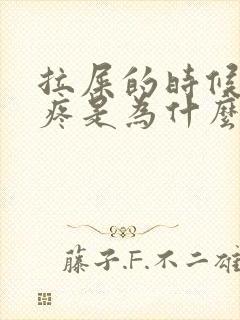 拉屎的時候
疼是為什麼
藤子.F.不二雄